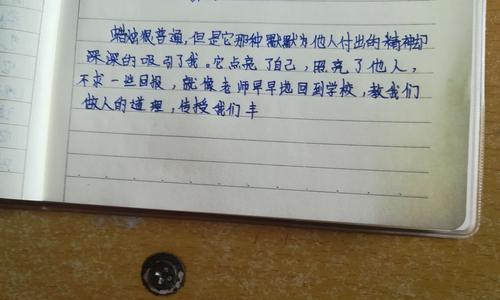 蜡烛很普通，但是它那种默默为他人付出的精神却
深深的吸引了我。它点亮了自己，照亮了他人，
不求一些回报，就像老师早早地回到学校，教我们
做人的道理，传授我们丰